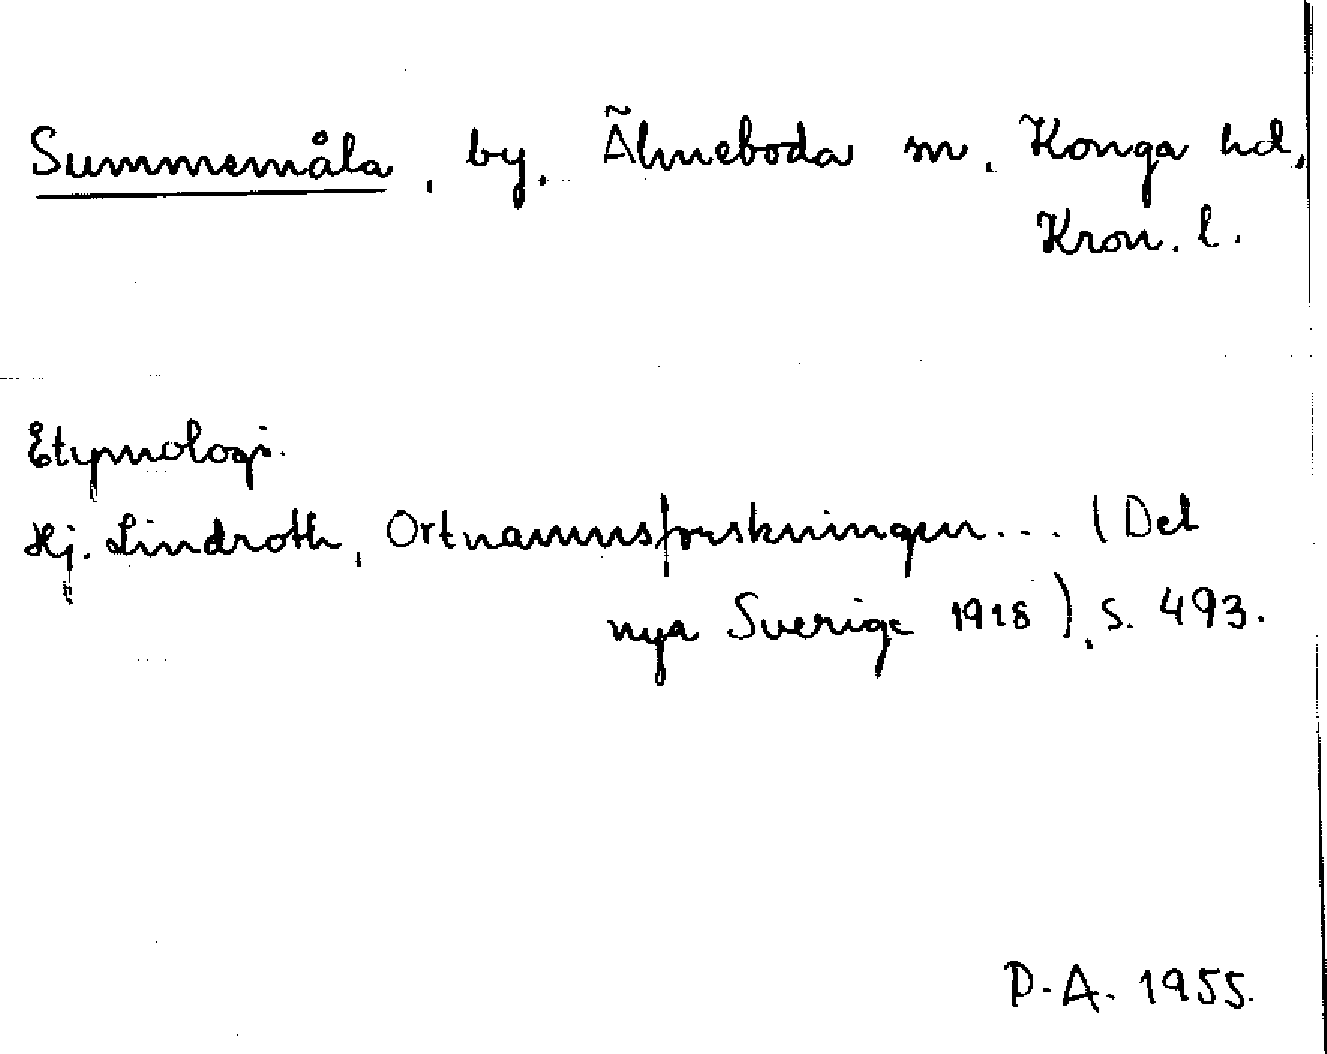 Summemåla, by. Älmeboda sn. Konga hd,
Kron. l.
Etymologi.
Hj. Lindroth, Ortnamnsforskningen... (Det
nya Sverige 1918), s. 493.
P.A. 1955.